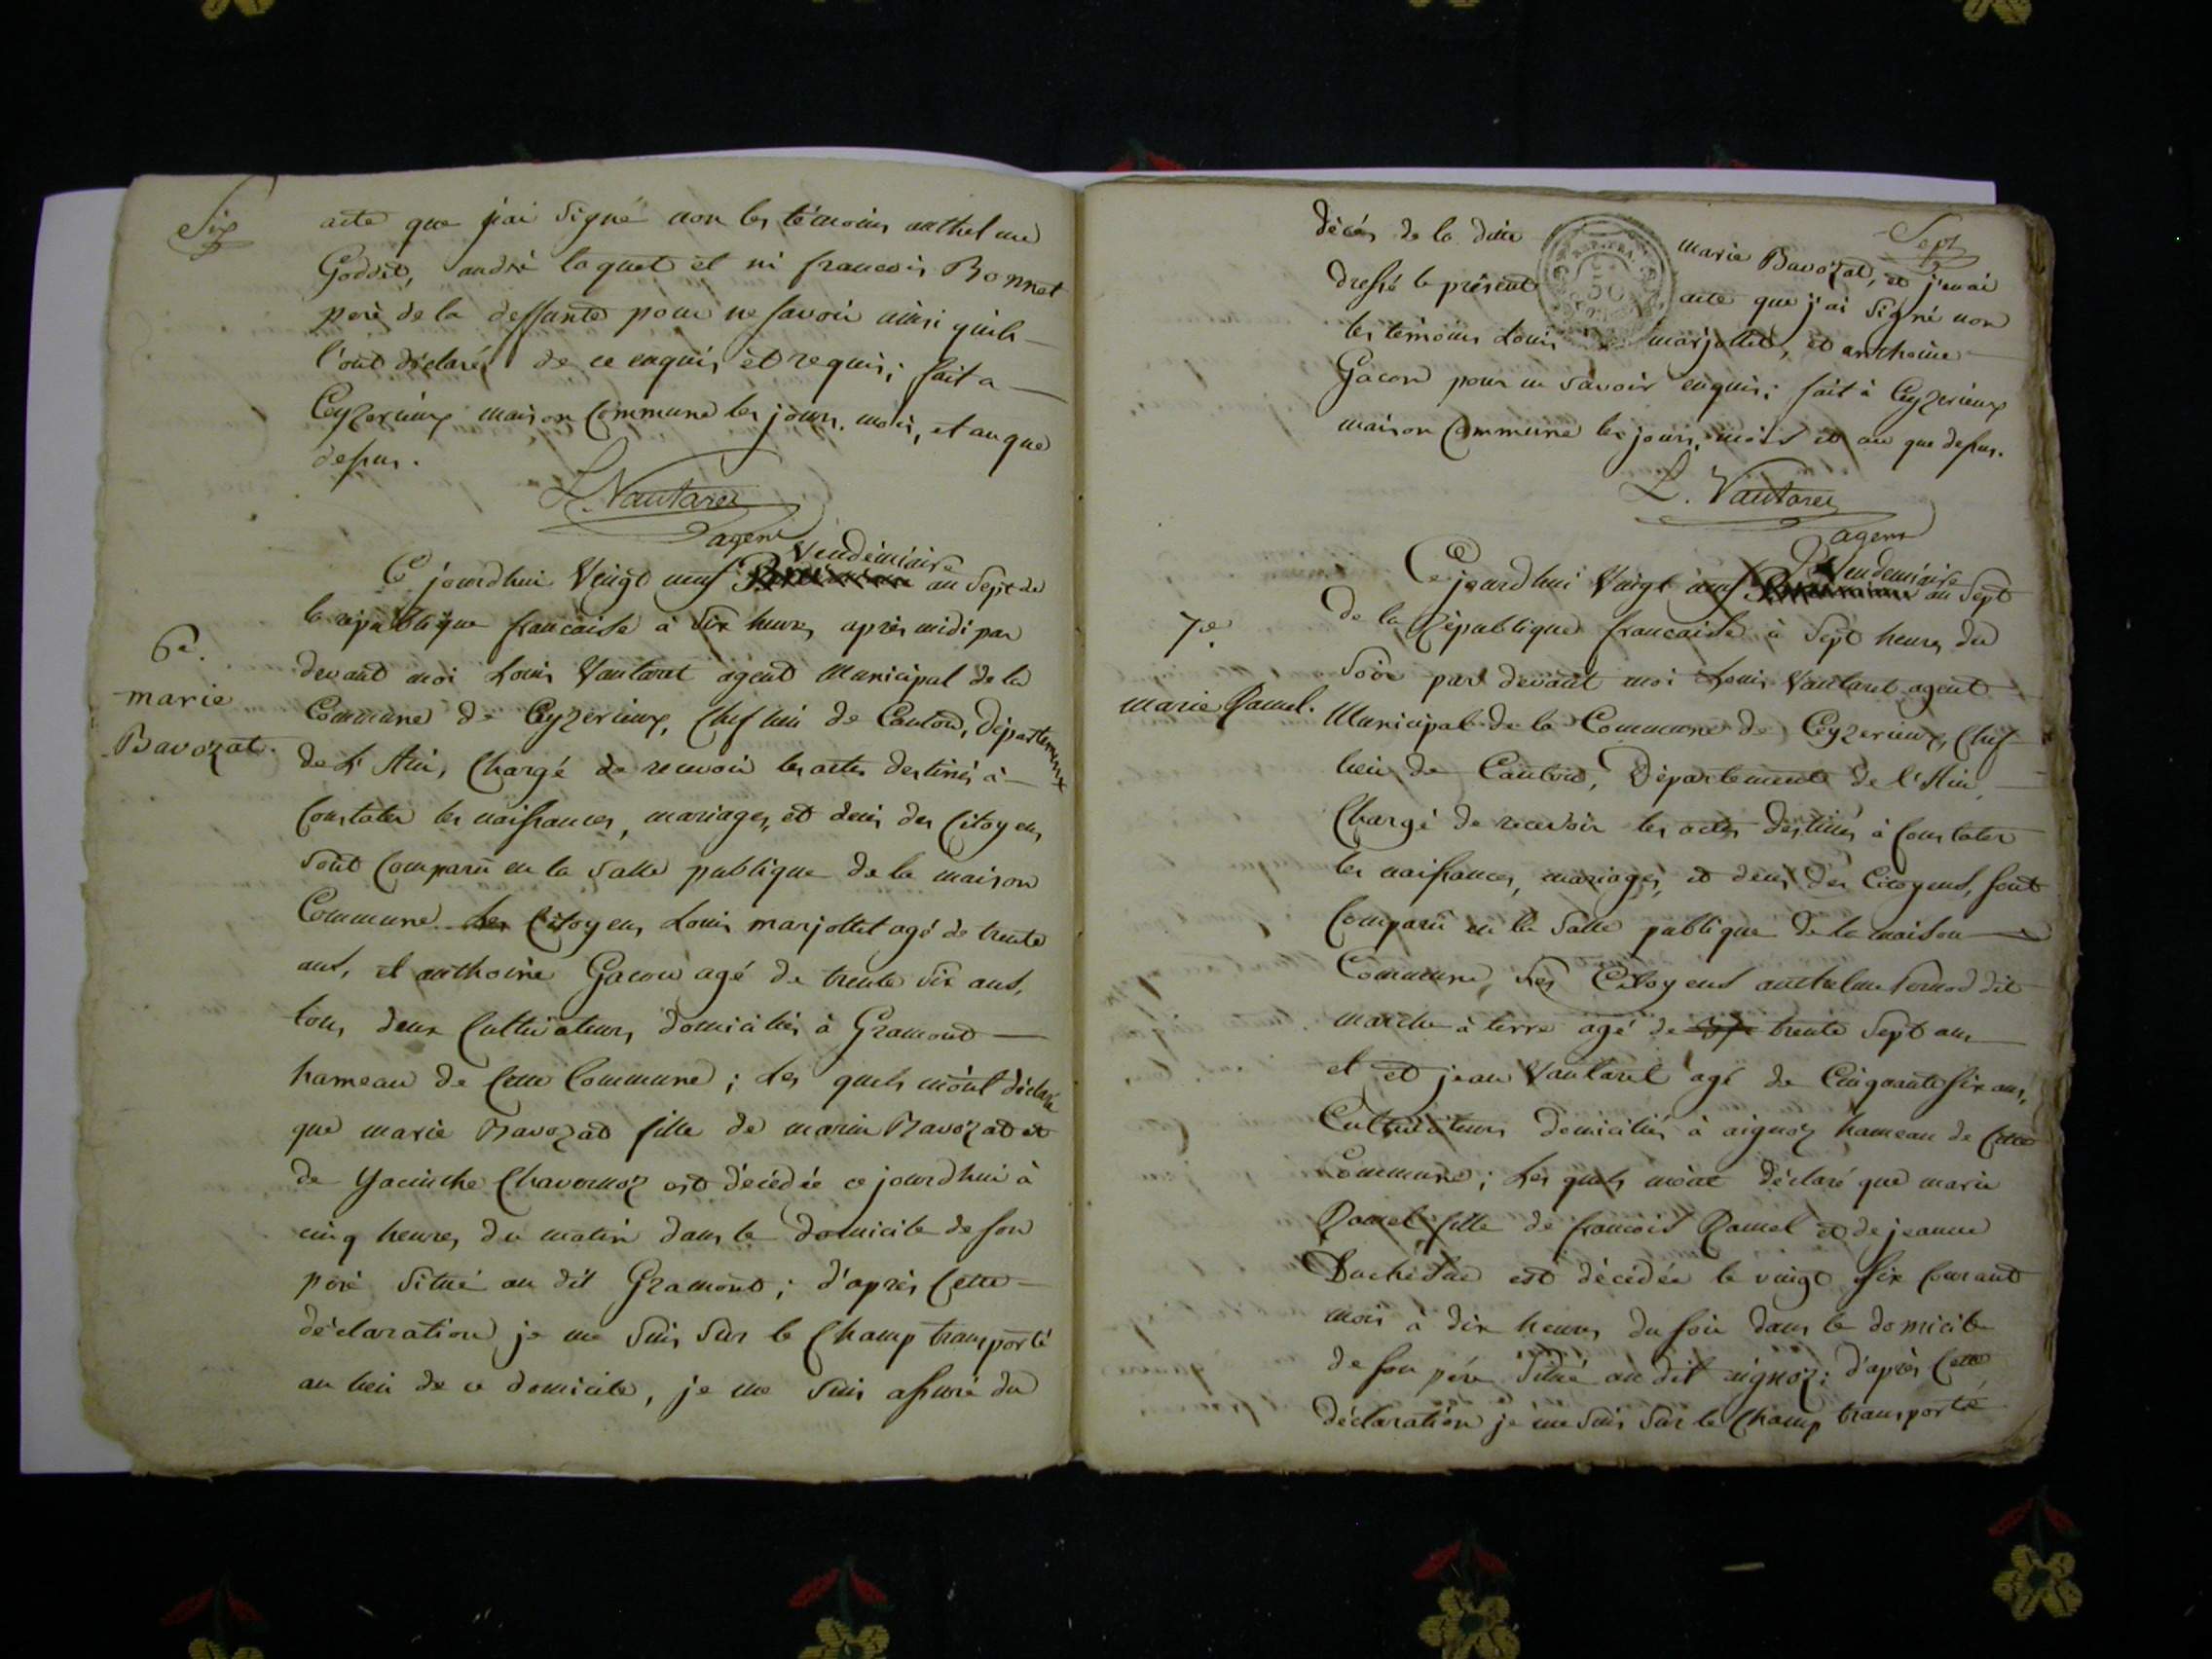 Six
acte que j'ai Signé non les témoins anthelme
Goddet, andré laquet et ni francois Bonnet
père de la deffunte pour ne savoir ainsi quils
l'ont déclarés de ce enquis et requis; fait a
Ceyzerieux maison Commune les jours, mois, et an que
dessus.
L. Vautaret
agent
Vendémiaire
Ce jourdhui Vingt neuf an Sept de
la république francaise à Six heures après midi par
devant moi Louis Vautaret agent Municipal de la
Commune de Ceyzerieux, Chef lieu de Canton, département
de L'Ain, Chargé de recevoir les actes destinés à
Constater les naissances, mariages, et decès des Citoyens
Sont Comparu en la Salle publique de la maison
Commune Les Citoyens Louis marjollet agé de trente
ans, et anthoine Gacon agé de trente six ans,
tous deux Cultivateurs domiciliés à Gramont
hameau de Cette Commune; Les quels m'ont déclaré
que marie Bavozat fille de marin Bavozat et
de Yacinthe Chavornoz est décédée ce jourdhui à
cinq heures du matin dans le domicile de son
père Situé au dit Gramont; d'après Cette
déclaration je me Suis Sur le Champ transporté
au lieu de ce domicile, je me Suis assuré du
6e.
marie
Bavozat.
Sept
décès de la dite marie Bavozat, et j'en ai
dressé le présent acte que j'ai Signé non
les témoins Louis marjollet, et anthoine
Gacon pour ne savoir enquis; fait à Ceyzerieux
maison Commune les jours, mois et an que dessus.
L. Vautaret
agent
Vendemiaire
Ce jourdhui Vingt neuf an Sept
de la République francaise à Sept heures du
Soir par devant moi Louis Vautaret agent
Municipal de la Commune de Ceyzerieux, Chef
lieu de Canton, Département de l'Ain,
Chargé de recevoir les actes destinés à Constater
les naissances, mariages, et decès des Citoyens, sont
Comparu en la Salle publique de la maison
Commune, Les Citoyens anthelme dit
marche à terre agé de trente Sept ans
et et jean Vautaret agé de Cinquante six ans,
Cultivateurs domiciliés à aignoz hameau de Cette
Commune; Les quels m'ont déclaré que marie
Ramel fille de francois Ramel et de jeanne
Duchesne est décédée le vingt six Courant
mois à dix heures du soir dans le domicile
de son père Situé au dit aignoz; d'après Cette
déclaration je me Suis Sur le Champ transporté
7e.
marie Ramel.